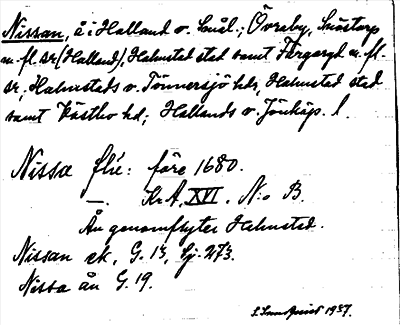 Nissan, å i Halland o. Smål.; Övraby, Snöstorp
m. fl. sr (Halland), Halmstad stad samt Färgaryd m. fl.
sr, Halmstads o. Tönnersjö hdr, Halmstad stad
samt Västbo hd; Hallands o. Jönköp. l.
Nissa flŭ: före 1680.
— . KrA, XVI, N:o B.
Ån genomflyter Halmstad.
Nissan ek, G. 13, bj. 273.
Nissa ån G. 19.
S. Landquist 1937.